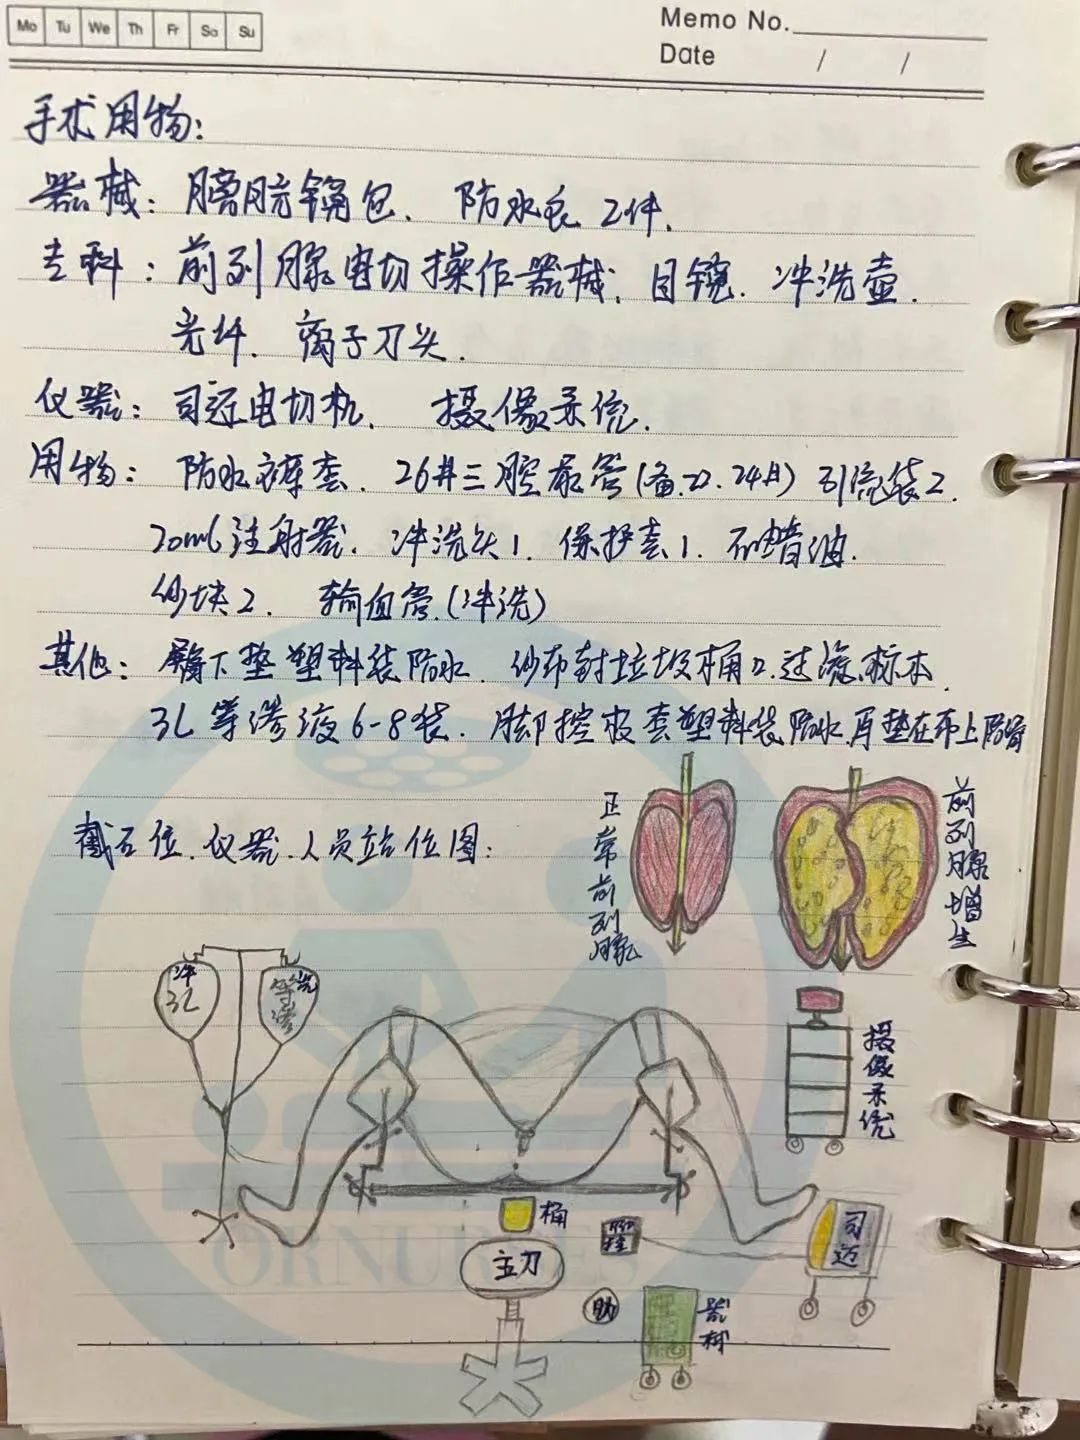 Mo Tu We Th Fr Sa Su
Memo No.
Date / /
手术用物:
器械: 膀胱镜包. 防水衣 2件.
专科: 前列腺电切操作器械. 目镜. 冲洗壶.
光纤. 离子刀头.
仪器: 司迈电切机. 摄像系统.
用物: 防水裤套. 26#三腔尿管(备.22.24#) 引流袋2.
20ml注射器. 冲洗头1. 保护套1. 石蜡油.
纱块2. 输血管(冲洗)
其他: 臀下垫塑料袋防水. 纱布封垃圾桶口.过滤标本.
3L等渗液6-8袋. 脚控板套塑料袋防水.再垫在布上防滑
截石位.仪器.人员站位图:
正常前列腺
前列腺增生
冲 洗
3L 等渗
摄像系统
桶
脚控
司迈
主刀
助
器械
ORNURSES